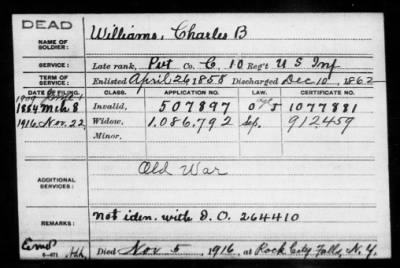 DEAD
NAME OF SOLDIER: Williams, Charles B
SERVICE: Late rank, Pvt Co. C, 10 Reg't U S Inf
TERM OF SERVICE: Enlisted April 26 1858 Discharged Dec 10, 1862
DATE OF FILING. CLASS. APPLICATION NO. LAW. CERTIFICATE NO.
1884 Mch 8 Invalid, 507897 1077881
1916 Nov. 22 Widow, 1.086.792 Sep. 912.459
Minor.
ADDITIONAL SERVICES: Old War
REMARKS: not iden. with D. O. 264410
Died Nov 5, 1916, at Rock City Falls, N.Y.